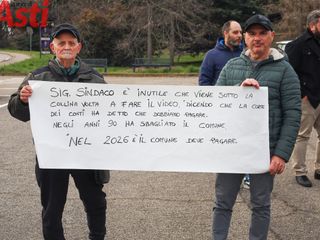 Asti
SIG. SINDACO È INUTILE CHE VIENE SOTTO LA
COLLINA VOLTA A FARE IL VIDEO, DICENDO CHE LA CORTE
DEI CONTI HA DETTO CHE DOBBIAMO PAGARE.
NEGLI ANNI 90 HA SBAGLIATO IL COMUNE,
NEL 2026 È IL COMUNE DEVE PAGARE